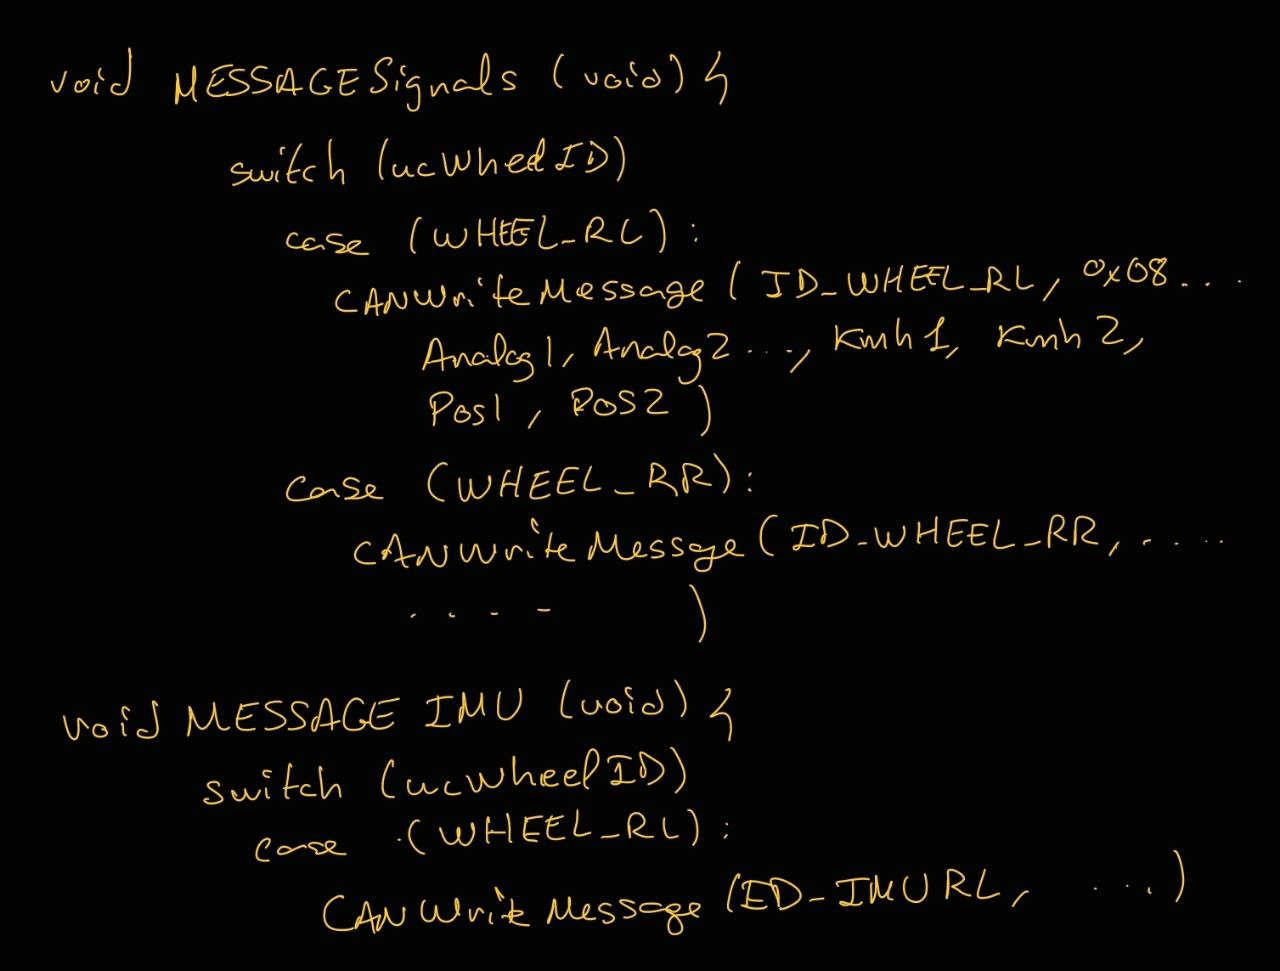 void MESSAGESignals (void) {
switch (ucWheelID)
case (WHEEL_RL) :
CANWriteMessage ( ID_WHEEL_RL, 0x08 ....
Analog1, Analog2 ..., Kmh1, Kmh2,
Pos1, POS2 )
case (WHEEL_RR) :
CANWriteMessage ( ID_WHEEL_RR, .....
.... )
void MESSAGE IMU (void) {
switch (ucWheelID)
case (WHEEL_RL) :
CANWriteMessage (ID_IMURL, ....)